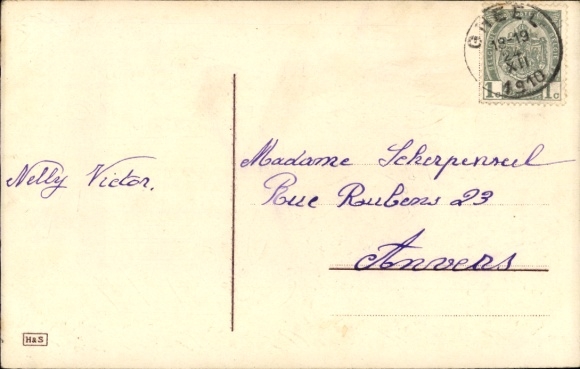 GHEEL
18-19
24
XII
1910
1 c 1 c
Nelly Victor.
Madame Scherpereel
Rue Rubens 23
Anvers
H&S